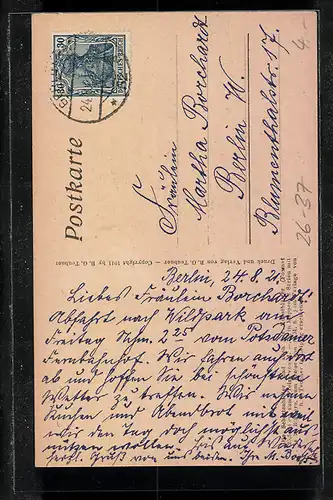 30 30
DEUTSCHES REICH
Postkarte
Fräulein
Martha Borchardt
Berlin W.
Blumenthalstr. 17.
4.-
26-37
Druck und Verlag von B. G. Teubner — Copyright 1911 by B. G. Teubner
Berlin, 24.8.21.
Liebes Fräulein Borchardt!
Abfahrt nach Wildpark am
Freitag Nchm. 2 25 vom Potsdamer
Fernbahnhof. Wir fahren auf dort
ab und hoffen Sie bei schönstem
Wetter zu treffen. Wir nehmen
Kuchen und Abendbrot mit weil
wir den Tag doch möglichst aus
nutzen wollen. Bis auf Wieder
seh'n. Gruß von uns beiden Ihr M.